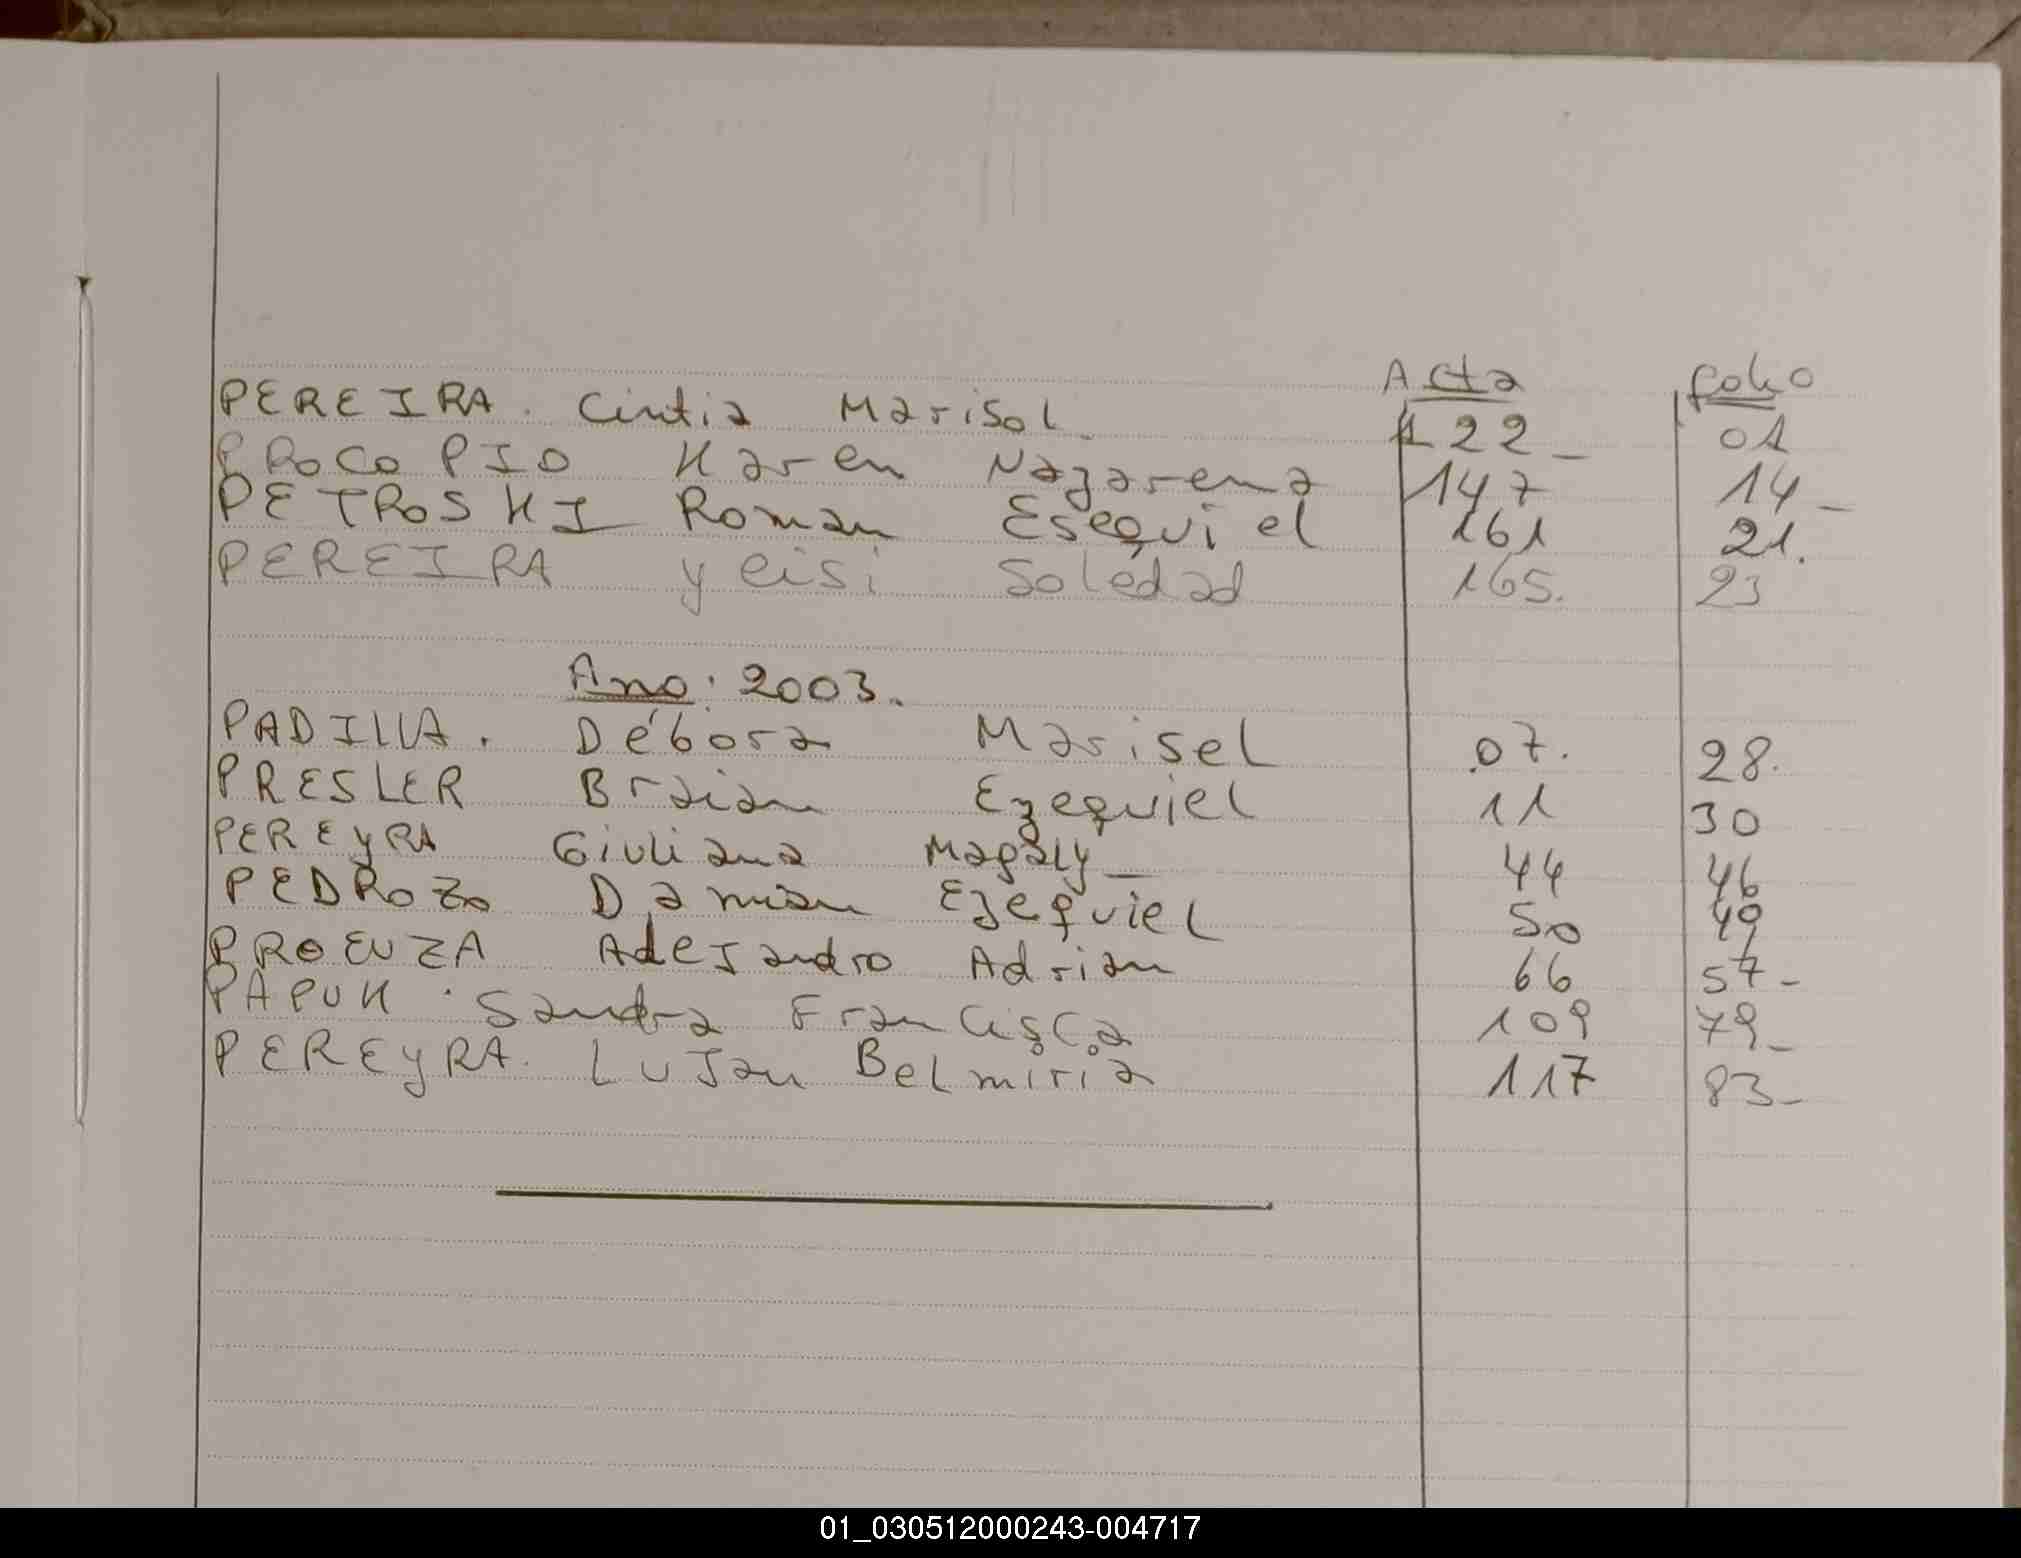 Acta folio
PEREIRA. Cintia Marisol 122_ 01
PROCOPIO Karen Nazarena 147 14_
PETROSKI Roman Esequiel 161 21.
PEREIRA yeisi Soledad 165. 23
Ano: 2003.
PADILLA. Débora Marisel 07. 28.
PRESLER Braian Ezequiel 11 30
PEREyRA Giuliana Magaly_ 44 46
PEDROZO Damian Ezequiel 50 49
PROENZA AdeJandro Adrian 66 57_
PAPUK. Sandra Francisca 109 79_
PEREyRA. LuJan Belmiria 117 83_
01_030512000243-004717